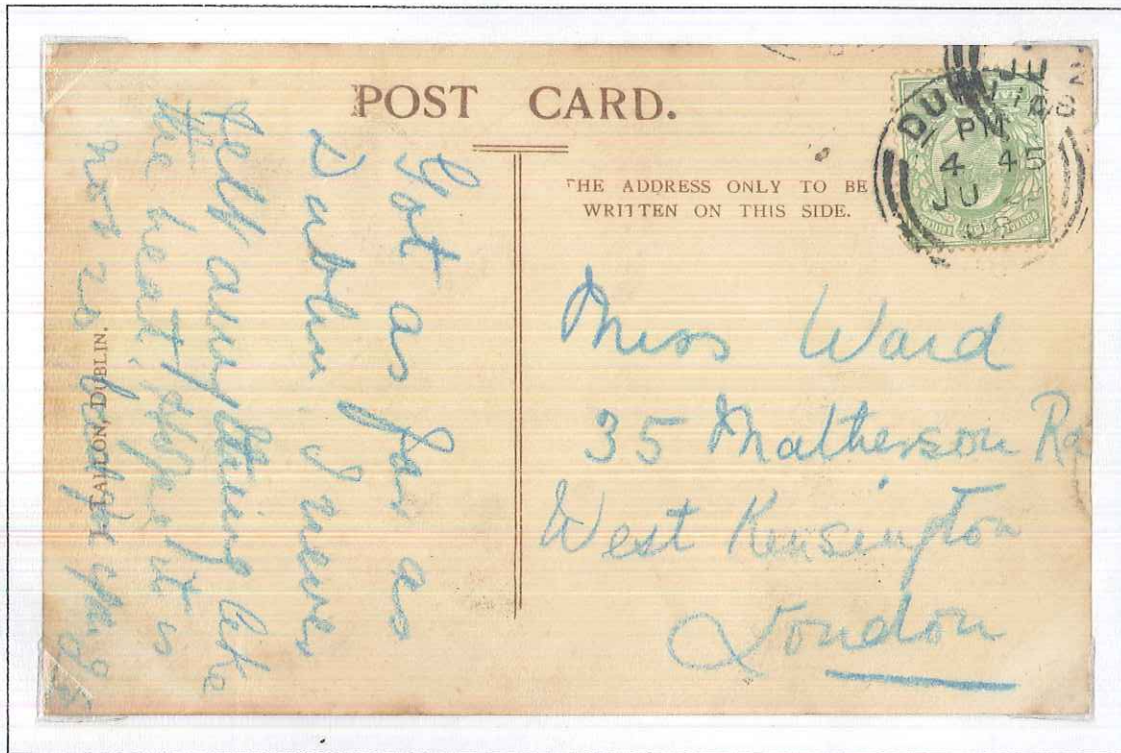 POST CARD.
THE ADDRESS ONLY TO BE
WRITTEN ON THIS SIDE.
DUBLIN
PM
4 45
JU
Miss Ward
35 Matherson Rd
West Kensington
London
Got as far as
Dublin. I never
felt anything like
the heat, hope it is
not so
TALLON, DUBLIN.